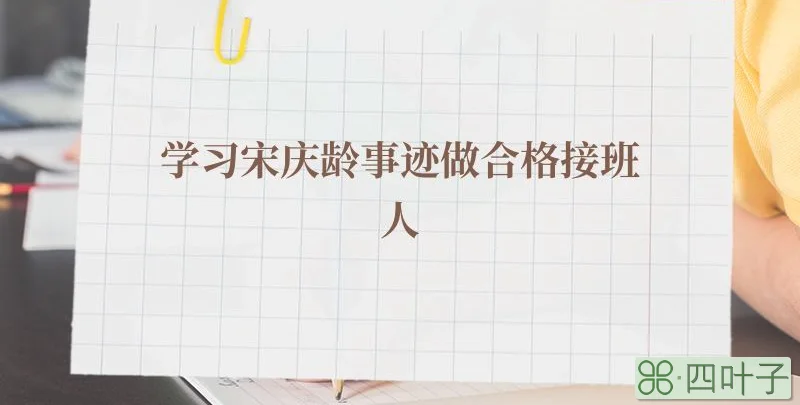 学习宋庆龄事迹做合格接班
人
⌘·四叶子